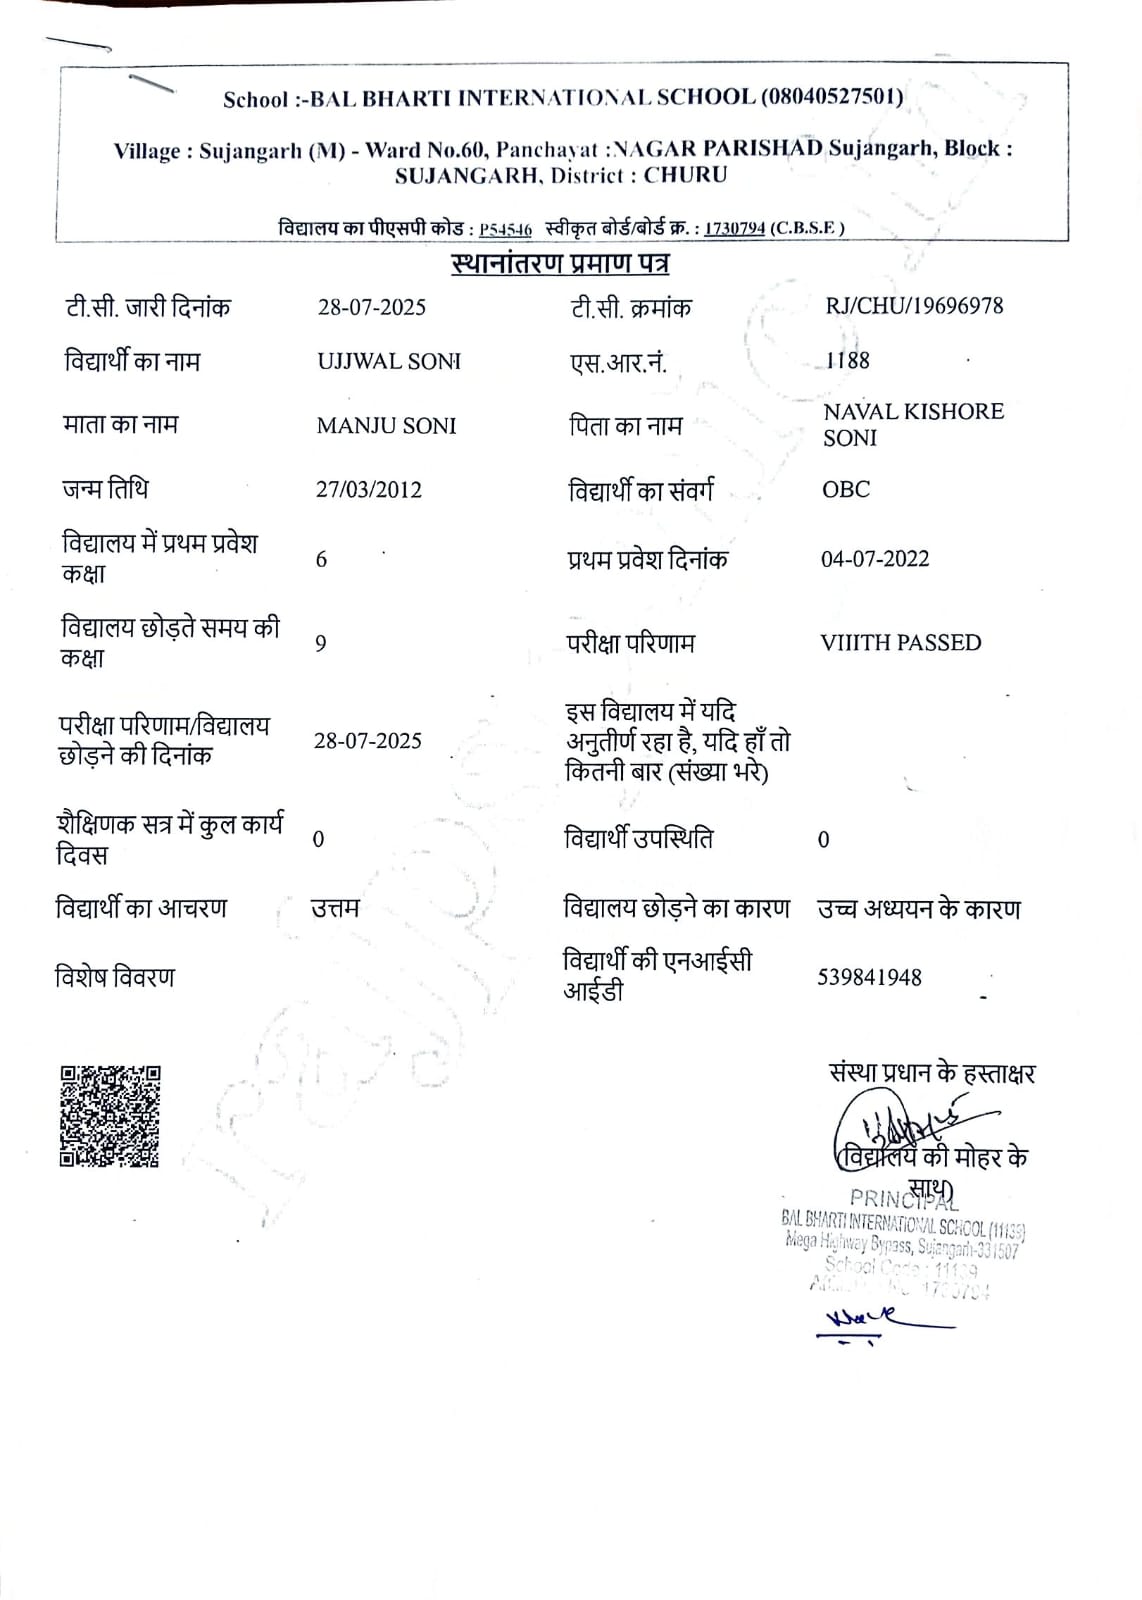 School :-BAL BHARTI INTERNATIONAL SCHOOL (08040527501)
Village : Sujangarh (M) - Ward No.60, Panchayat :NAGAR PARISHAD Sujangarh, Block :
SUJANGARH, District : CHURU
विद्यालय का पीएसपी कोड : P54546 स्वीकृत बोर्ड/बोर्ड क्र. : 1730794 (C.B.S.E )
स्थानांतरण प्रमाण पत्र
टी.सी. जारी दिनांक 28-07-2025 टी.सी. क्रमांक RJ/CHU/19696978
विद्यार्थी का नाम UJJWAL SONI एस.आर.नं. 1188
माता का नाम MANJU SONI पिता का नाम NAVAL KISHORE
SONI
जन्म तिथि 27/03/2012 विद्यार्थी का संवर्ग OBC
विद्यालय में प्रथम प्रवेश
कक्षा 6 प्रथम प्रवेश दिनांक 04-07-2022
विद्यालय छोड़ते समय की
कक्षा 9 परीक्षा परिणाम VIIITH PASSED
परीक्षा परिणाम/विद्यालय
छोड़ने की दिनांक 28-07-2025
इस विद्यालय में यदि
अनुतीर्ण रहा है, यदि हाँ तो
कितनी बार (संख्या भरे)
शैक्षिणक सत्र में कुल कार्य
दिवस 0 विद्यार्थी उपस्थिति 0
विद्यार्थी का आचरण उत्तम विद्यालय छोड़ने का कारण उच्च अध्ययन के कारण
विशेष विवरण
विद्यार्थी की एनआईसी
आईडी 539841948
संस्था प्रधान के हस्ताक्षर
(विद्यालय की मोहर के
साथ)
PRINCIPAL
BAL BHARTI INTERNATIONAL SCHOOL (11139)
Mega Highway Bypass, Sujangarh-331507
School Code : 11139
1730794